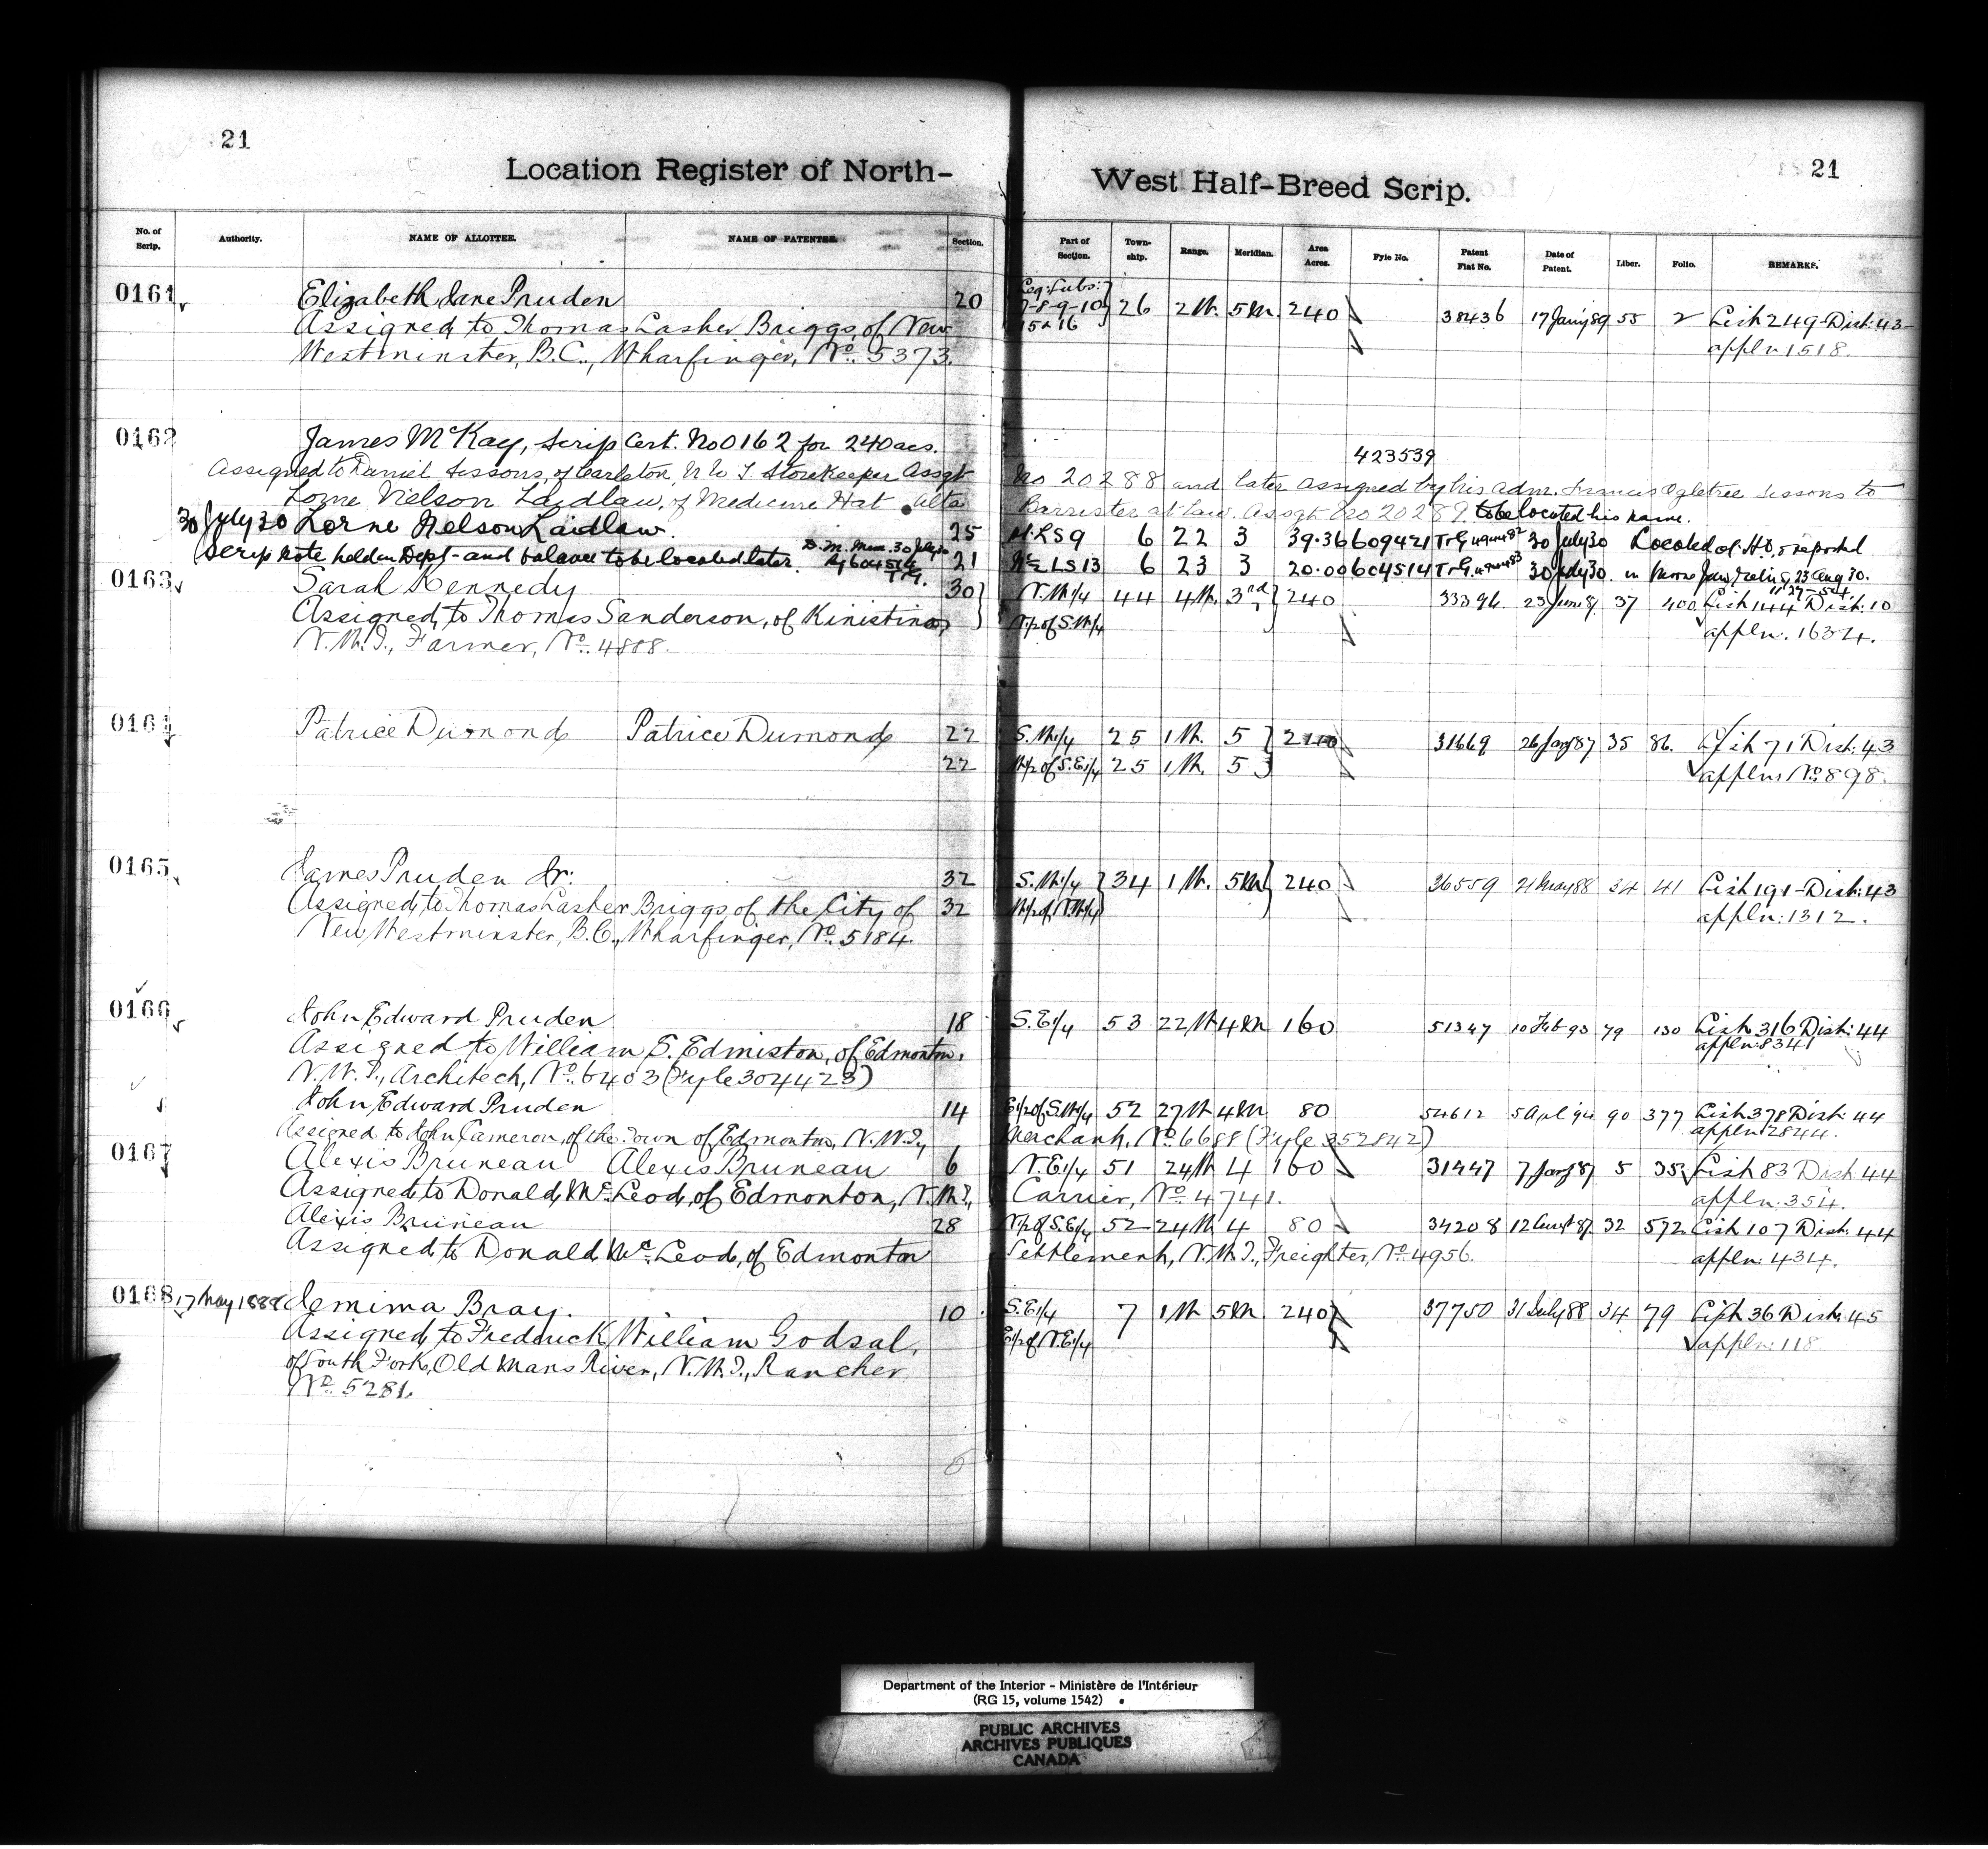 21
21
Location Register of North-West Half-Breed Scrip.
No. of Scrip. Authority. NAME OF ALLOTTEE. NAME OF PATENTEE. Section. Part of Section. Town-ship. Range. Meridian. Area Acres. Fyle No. Patent Fiat No. Date of Patent. Liber. Folio. REMARKS.
0161 Elizabeth Jane Pruden 20 Leg: Subs: 7-8-9-10 15 & 16 26 2 W. 5 M. 240 38436 17 Jan'y 89 55 2 List 249-Dist: 43
Assigned to Thomas Lasher Briggs, of New appln 1518.
Westminster, B.C., Wharfinger, No. 5373.
0162 James McKay, Scrip Cert. No 0162 for 240 acs. 423539
Assigned to Daniel Sissons, of Carleton, N W T Storekeeper Assgt No 20288 and later assigned by his adm. Frances Ogletree Sissons to
Lorne Nelson Laidlaw, of Medicine Hat Alta Barrister at Law. Assgt No 20289. to be located his name.
30 July 30 Lorne Nelson Laidlaw. 25 LS 9 6 22 3 39.36 609421 30 July 30 Located at H.O. & reported
Scrip note held in Dept- and balance to be located later. D.M. Mem. 30 July 30 604514 21 LS 13 6 23 3 20.00 604514 30 July 30. in Moose Jaw 23 Aug 30.
0163 Sarah Kennedy 30 N.W.1/4 44 4 W. 3rd 240 33394 23 June 87 37 400 List 144 Dist: 10
Assigned to Thomas Sanderson, of Kinistino, N.1/2 of S.W.1/4 appln. 1634.
N.W.T., Farmer, No. 4888.
0164 Patrice Dumond Patrice Dumond 22 S.W.1/4 25 1 W. 5 240 31669 26 Jany 87 35 86. List 71 Dist: 43
22 W.1/2 of S.E.1/4 25 1 W. 5 appln No 898.
0165 James Pruden Jr: 32 S.W.1/4 34 1 W. 5 M 240 36559 21 May 88 34 41 List 191-Dist: 43
Assigned to Thomas Lasher Briggs of the City of 32 W.1/2 of N.W.1/4 appln: 1312.
New Westminster, B.C., Wharfinger, No. 5184.
0166 John Edward Pruden 18 S.E.1/4 53 22 W 4 M 160 51347 10 Feb 93 79 130 List 316 Dist: 44
Assigned to William S. Edmiston, of Edmonton, appln: 8341
N.W.T., Architect, No. 6403 (Fyle 304423)
John Edward Pruden 14 E.1/2 of S.W.1/4 52 27 W 4 M 80 54612 5 Apl '94 90 377 List 378 Dist: 44
Assigned to John Cameron, of the Town of Edmonton, N.W.T., Merchant, No. 6688 (Fyle 352842) appln: 2844.
0167 Alexis Bruneau Alexis Bruneau 6 N.E.1/4 51 24 W 4 160 31447 7 Jany 87 5 353 List 83 Dist: 44
Assigned to Donald McLeod, of Edmonton, N.W.T., Carrier, No. 4741. appln: 354.
Alexis Bruneau 28 N.1/2 of S.E.1/4 52 24 W 4 80 34208 12 August 87 32 572 List 107 Dist: 44
Assigned to Donald McLeod, of Edmonton Settlement, N.W.T., Freighter, No. 4956. appln: 434.
0168 17 May 1888 Jemima Bray. 10 S.E.1/4 7 1 W 5 M 240 37750 31 July 88 34 79 List 36 Dist: 45
Assigned to Frederick William Godsal, E.1/2 of N.E.1/4 appln: 118
of South Fork, Old Mans River, N.W.T., Rancher
No. 5281.
Department of the Interior - Ministère de l'Intérieur
(RG 15, volume 1542)
PUBLIC ARCHIVES
ARCHIVES PUBLIQUES
CANADA